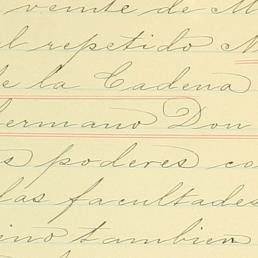 veinte de M
al repetido N
de la Cadena
hermano Don
s poderes co
las facultades
ino tambien